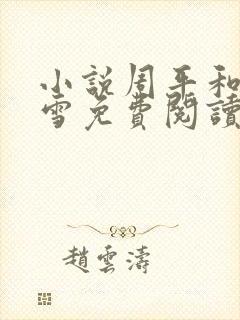 小說周平和
雪免費閱讀
趙雲濤